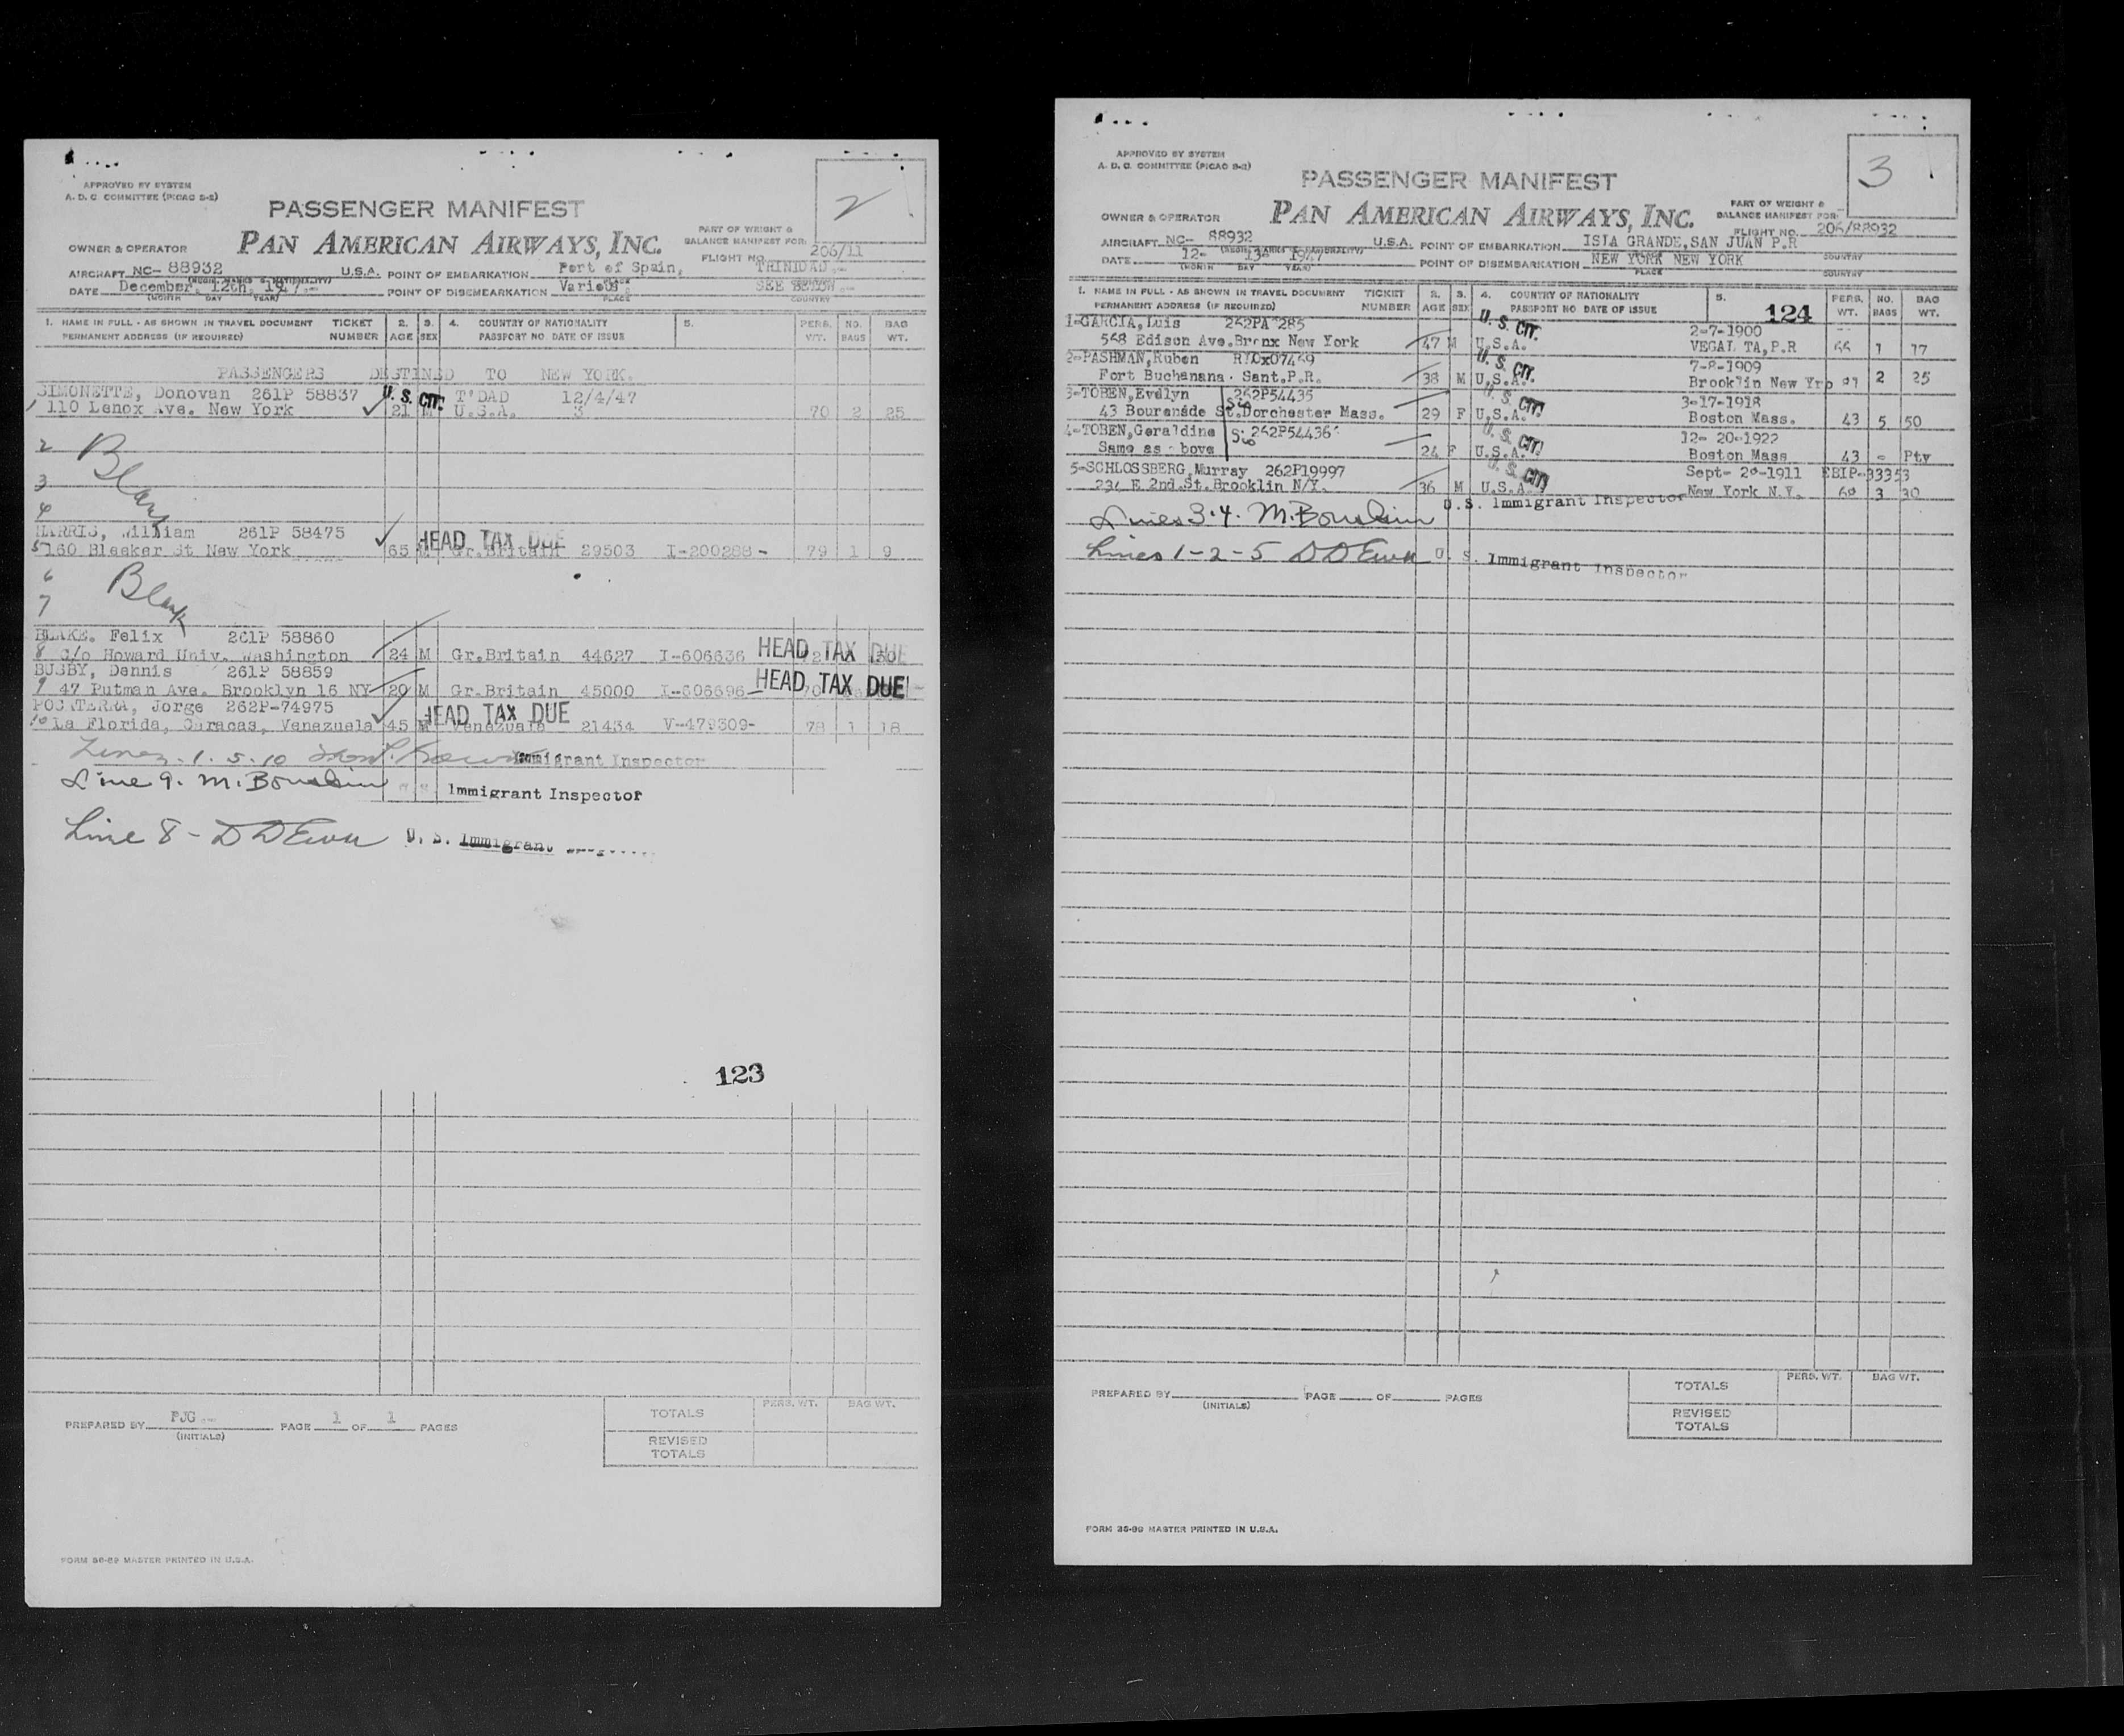 2
APPROVED BY SYSTEM
A. D. C. COMMITTEE (PICAO S-2)
PASSENGER MANIFEST
PAN AMERICAN AIRWAYS, INC.
PART OF WEIGHT &
BALANCE MANIFEST FOR
OWNER & OPERATOR
FLIGHT NO. 206/11
AIRCRAFT NC- 88932 U.S.A. POINT OF EMBARKATION Port of Spain, TRINIDAD.-
(REGIS. MARKS & NATIONALITY) PLACE
DATE December, 12th, 1947.- POINT OF DISEMBARKATION Various SEE BELOW.-
(MONTH DAY YEAR) PLACE COUNTRY
1. NAME IN FULL - AS SHOWN IN TRAVEL DOCUMENT TICKET 2. 3. 4. COUNTRY OF NATIONALITY 5. PERS. NO. BAG
PERMANENT ADDRESS (IF REQUIRED) NUMBER AGE SEX PASSPORT NO. DATE OF ISSUE WT. BAGS WT.
PASSENGERS DESTINED TO NEW YORK.
SIMONETTE, Donovan 261P 58837 U.S. CIT. T'DAD 12/4/47
1 110 Lenox Ave. New York 21 M U.S.A. 3 70 2 25
2 Blank
3
4
HARRIS, William 261P 58475 HEAD TAX DUE
5 160 Bleeker St New York 65 M Gr.Britain 29503 I-200288 - 79 1 9
6 Blank
7
BLAKE. Felix 261P 58860
8 C/o Howard Univ. Washington 24 M Gr.Britain 44627 I-606636 HEAD TAX DUE
BUSBY, Dennis 261P 58859
9 47 Putman Ave. Brooklyn 16 NY 20 M Gr.Britain 45000 I-606696 HEAD TAX DUE
POCATERRA, Jorge 262P-74975 HEAD TAX DUE
10 La Florida, Caracas, Venezuela 45 M Venezuela 21434 V-479309- 78 1 18
Lines. 1. 5. 10 Immigrant Inspector
Line 9. M. Immigrant Inspector
Line 8 - U. S. Immigrant
123
PREPARED BY PJG.- PAGE 1 OF 1 PAGES
(INITIALS)
TOTALS PERS. WT. BAG WT.
REVISED
TOTALS
FORM 36-89 MASTER PRINTED IN U.S.A.
3
APPROVED BY SYSTEM
A. D. C. COMMITTEE (PICAO S-2)
PASSENGER MANIFEST
PAN AMERICAN AIRWAYS, INC.
PART OF WEIGHT &
BALANCE MANIFEST FOR
OWNER & OPERATOR
FLIGHT NO. 206/88932
AIRCRAFT NC- 88932 U.S.A. POINT OF EMBARKATION ISLA GRANDE,SAN JUAN P.R
(REGIS. MARKS & NATIONALITY) PLACE COUNTRY
DATE 12- 13- 1947 POINT OF DISEMBARKATION NEW YORK NEW YORK
(MONTH DAY YEAR) PLACE COUNTRY
1. NAME IN FULL - AS SHOWN IN TRAVEL DOCUMENT TICKET 2. 3. 4. COUNTRY OF NATIONALITY 5. PERS. NO. BAG
PERMANENT ADDRESS (IF REQUIRED) NUMBER AGE SEX PASSPORT NO DATE OF ISSUE 124 WT. BAGS WT.
1-GARCIA,Luis 262PA 285 U. S. CIT. 2-7-1900
568 Edison Ave.Bronx New York 47 M U.S.A. VEGAL TA,P.R 66 1 17
2-PASHMAN,Ruben RIOx07469 U. S. CIT. 7-8-1909
Fort Buchanana. Sant.P.R. 38 M U.S.A. Brooklin New Yrp 91 2 25
3-TOBEN,Evelyn 262P54435 U. S. CIT. 3-17-1918
43 Bourenade St.Dorchester Mass. 29 F U.S.A. Boston Mass. 43 5 50
4-TOBEN,Geraldine 262P54436 U. S. CIT. 12- 20-1922
Same as above 24 F U.S.A. Boston Mass 43 - Pty
5-SCHLOSSBERG,Murray 262P19997 U. S. CIT. Sept- 20-1911 EBIP-33353
234 E 2nd.St.Brooklin N/Y. 36 M U.S.A. New York N.Y. 68 3 30
Lines 3.4. M. U.S. Immigrant Inspector
Lines 1-2-5 U. S. Immigrant Inspector
PREPARED BY PAGE OF PAGES
(INITIALS)
TOTALS PERS. WT. BAG WT.
REVISED
TOTALS
FORM 36-89 MASTER PRINTED IN U.S.A.